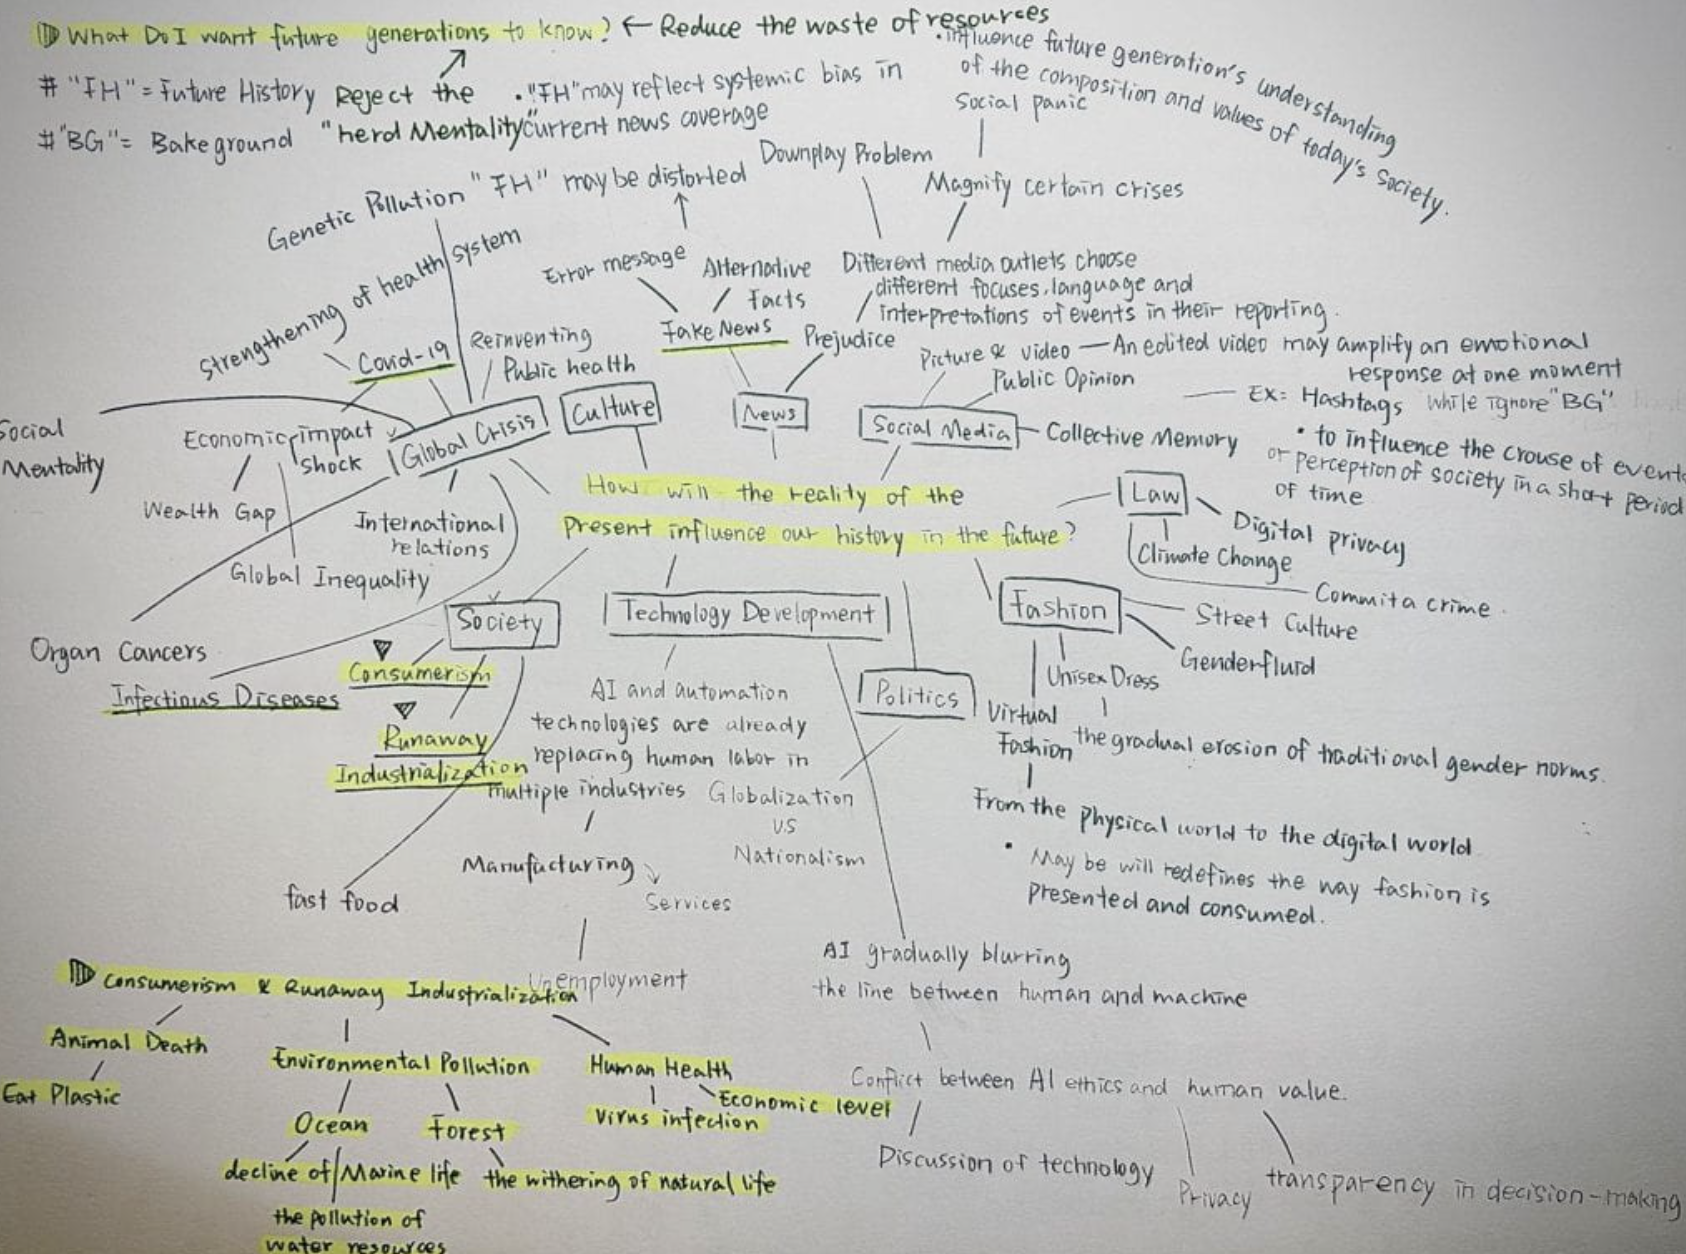 What Do I want future generations to know? ← Reduce the waste of resources
# "FH" = Future History
Reject the
"herd Mentality"
# "BG" = Bakeground
· "FH" may reflect systemic bias in
current news coverage
· influence future generation's understanding
of the composition and values of today's society.
Social panic
Downplay Problem
Magnify certain crises
Genetic Pollution
"FH" may be distorted
Strengthening of health system
Error message
Alternative
Facts
Different media outlets choose
different focuses, language and
interpretations of events in their reporting.
Covid-19
Reinventing
Public health
Fake News
Prejudice
Picture & video — An edited video may amplify an emotional
response at one moment
while ignore "BG"
Public Opinion
Ex: Hashtags
Social
Mentality
Economic impact
shock
Global Crisis
Culture
News
Social Media
Collective Memory
· to influence the crouse of events
or perception of society in a short period
of time
Wealth Gap
International
relations
Global Inequality
How will the reality of the
Present influence our history in the future?
Law
Digital privacy
Climate Change
Commit a crime.
Organ Cancers
Infectious Diseases
Society
Technology Development
Fashion
Street Culture
Genderfluid
Consumerism
Runaway
Industrialization
AI and automation
technologies are already
replacing human labor in
multiple industries
Politics
Unisex Dress
the gradual erosion of traditional gender norms.
Virtual
Fashion
Globalization
VS
Nationalism
From the physical world to the digital world
· May be will redefines the way fashion is
presented and consumed.
Manufacturing
Services
fast food
Unemployment
AI gradually blurring
the line between human and machine
Consumerism & Runaway Industrialization
Animal Death
Eat Plastic
Environmental Pollution
Human Health
Economic level
Virus infection
Ocean
Forest
decline of Marine life
the withering of natural life
the pollution of
water resources
Conflict between AI ethics and human value.
Discussion of technology
Privacy
transparency in decision-making